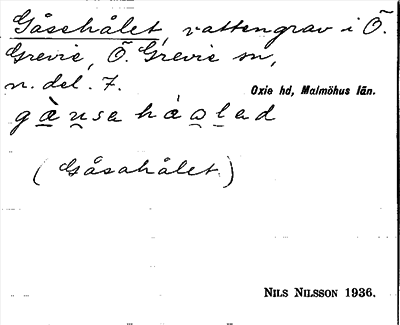 Gåsehålet, vattengrav i Ö.
Grevie, Ö. Grevie sn,
n. del. 7.
Oxie hd, Malmöhus län.
gànsa hàɷlad
(Gåsahålet)
NILS NILSSON 1936.